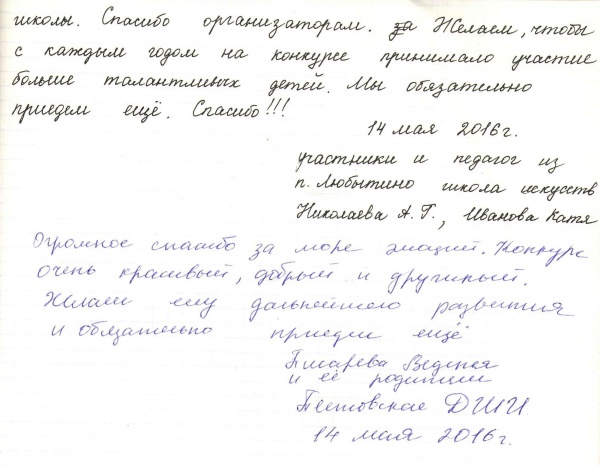 школы. Спасибо организаторам. за Желаем, чтобы
с каждым годом на конкурсе принимало участие
больше талантливых детей. Мы обязательно
приедем ещё. Спасибо!!!
14 мая 2016г.
участники и педагог из
п. Любытино школа искусств
Николаева А.Г., Иванова Катя
Огромное спасибо за море эмоций. Конкурс
очень красивый, добрый и дружный.
Желаем ему дальнейшего развития
и обязательно приедем ещё
Писарева
и её родители
Пестовская ДШИ
14 мая 2016г.